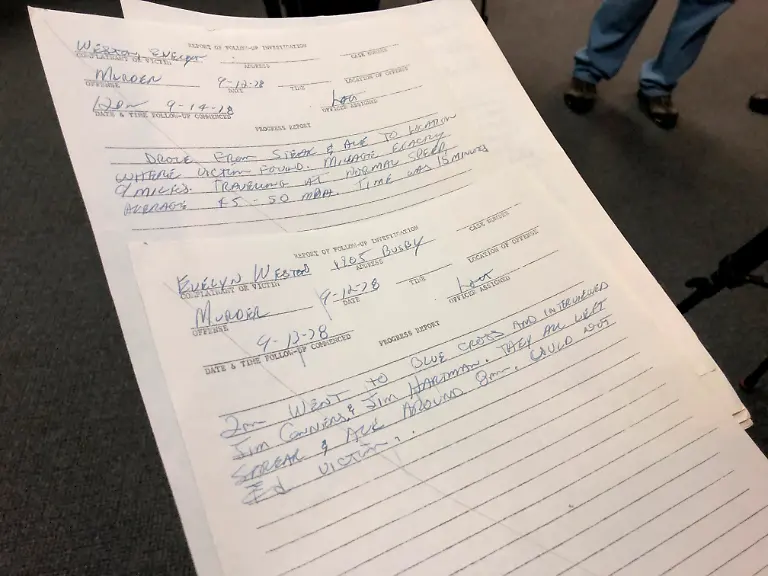 REPORT OF FOLLOW-UP INVESTIGATION
WESTON EVELYN
COMPLAINANT OR VICTIM ADDRESS CASE NUMBER
MURDER 9-12-78
OFFENSE DATE TIME LOCATION OF OFFENSE
12pm 9-14-78
DATE & TIME FOLLOW-UP COMMENCED OFFICER ASSIGNED
PROGRESS REPORT
DROVE FROM STEAK & ALE TO LOCATION
WHERE VICTIM FOUND. MILEAGE EXACTLY
9 MILES. TRAVELING AT NORMAL SPEED
AVERAGE 45-50 MPH. TIME WAS 15 MINUTES
REPORT OF FOLLOW-UP INVESTIGATION
EVELYN WESTON 1905 BUSBY
COMPLAINANT OR VICTIM ADDRESS CASE NUMBER
MURDER 9-12-78
OFFENSE DATE TIME LOCATION OF OFFENSE
9-13-78
DATE & TIME FOLLOW-UP COMMENCED OFFICER ASSIGNED
PROGRESS REPORT
2pm WENT TO BLUE CROSS AND INTERVIEWED
JIM CONNERS & JIM HARDMAN. THEY ALL LEFT
STEAK & ALE AROUND 8pm. COULD NOT
VICTIM.